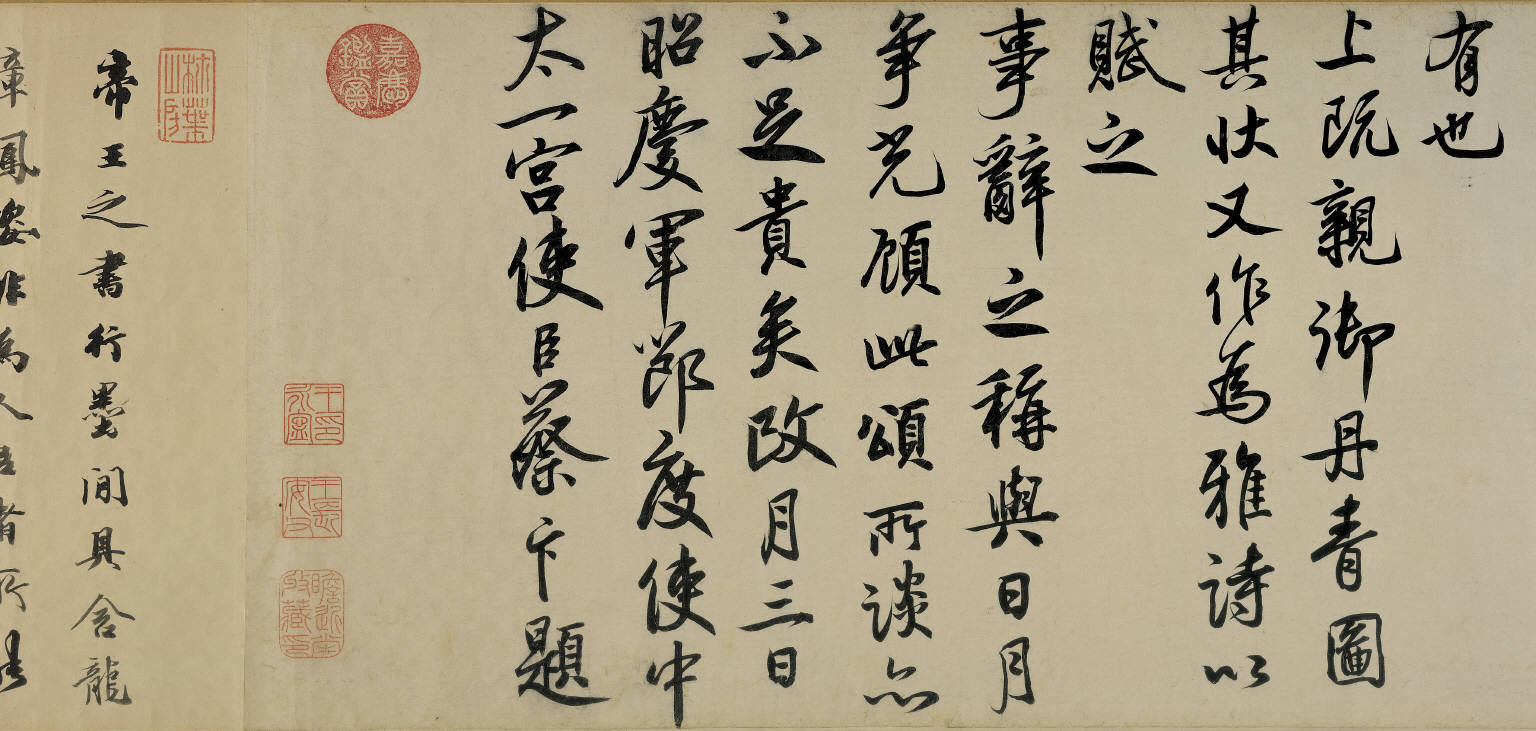 有也
上既親御丹青圖
其狀又作為雅詩以
賦之
事辭之稱與日月
爭光顧此頌所談亦
不足貴矣政月三日
昭慶軍節度使中
太一宮使臣蔡卞題
嘉慶鑑賞
帝王之書行墨間具含龍
章鳳姿非為人臣者所能